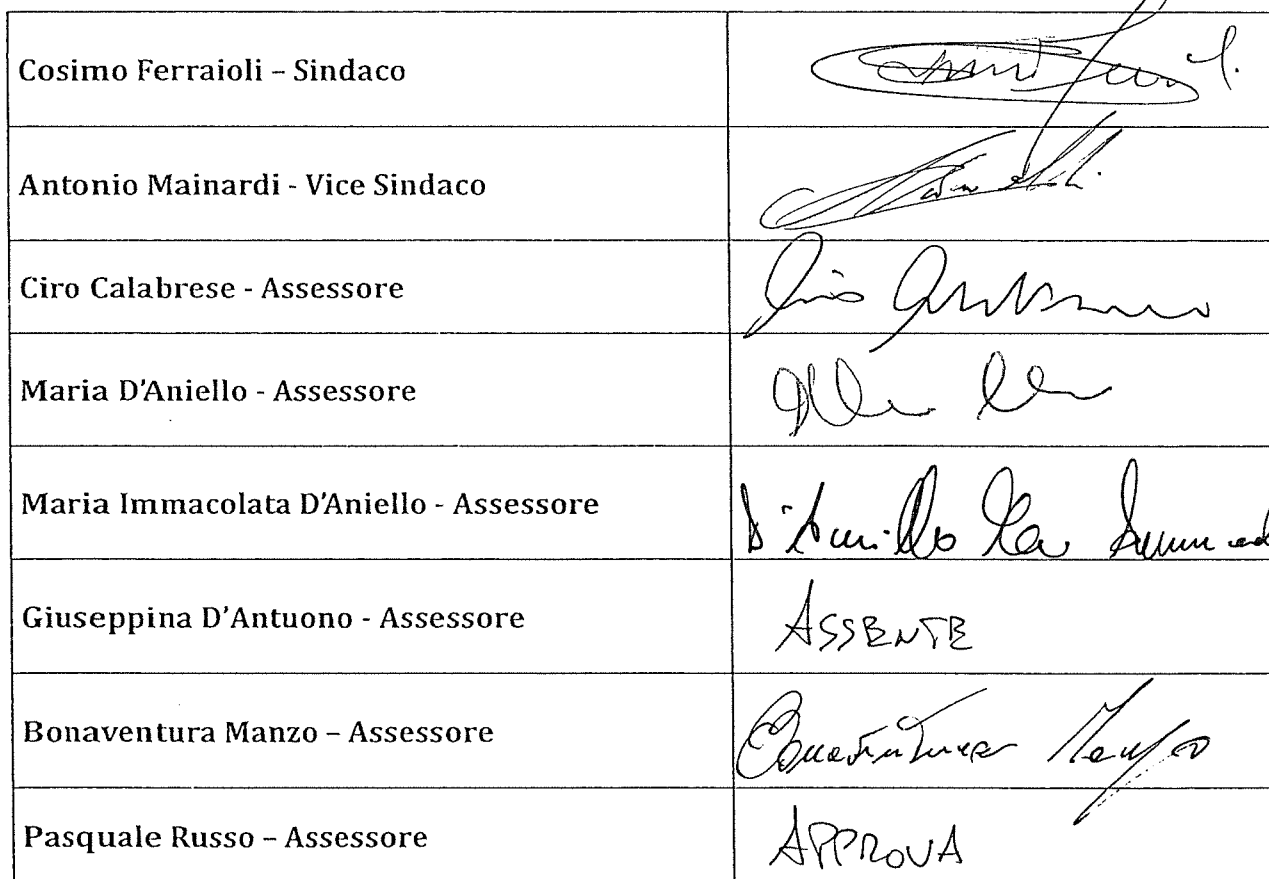 Cosimo Ferraioli – Sindaco
Antonio Mainardi - Vice Sindaco
Ciro Calabrese - Assessore
Maria D'Aniello - Assessore
Maria Immacolata D'Aniello - Assessore
Giuseppina D'Antuono - Assessore ASSENTE
Bonaventura Manzo – Assessore
Pasquale Russo – Assessore APPROVA